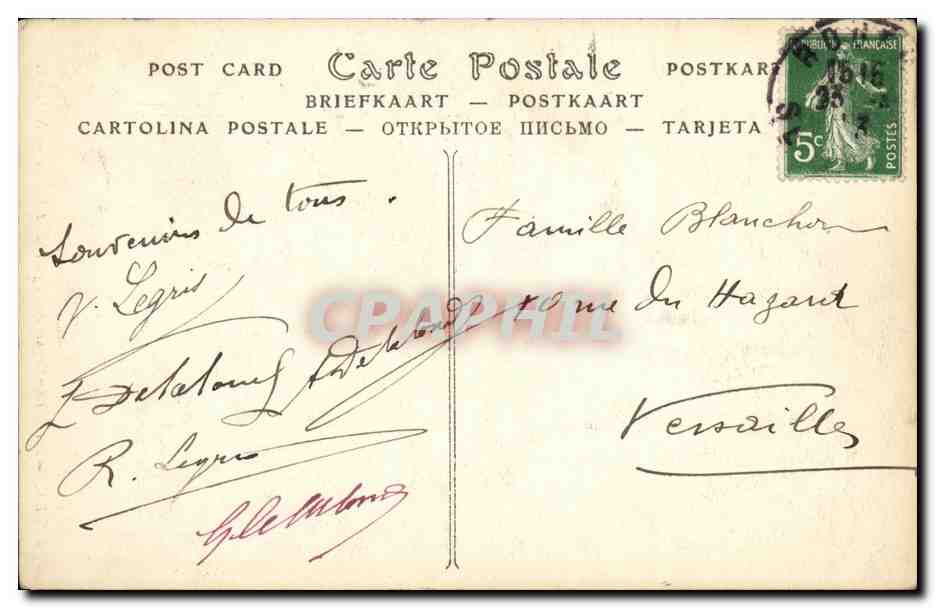 POST CARD Carte Postale POSTKART
BRIEFKAART — POSTKAART
CARTOLINA POSTALE — ОТКРЫТОЕ ПИСЬМО — TARJETA
RÉPUBLIQUE FRANÇAISE
5c
POSTES
Souvenirs de tous.
Y. Legris
R. Legris
Famille Blanchon
rue du Hazard
Versailles
CPAPHIL